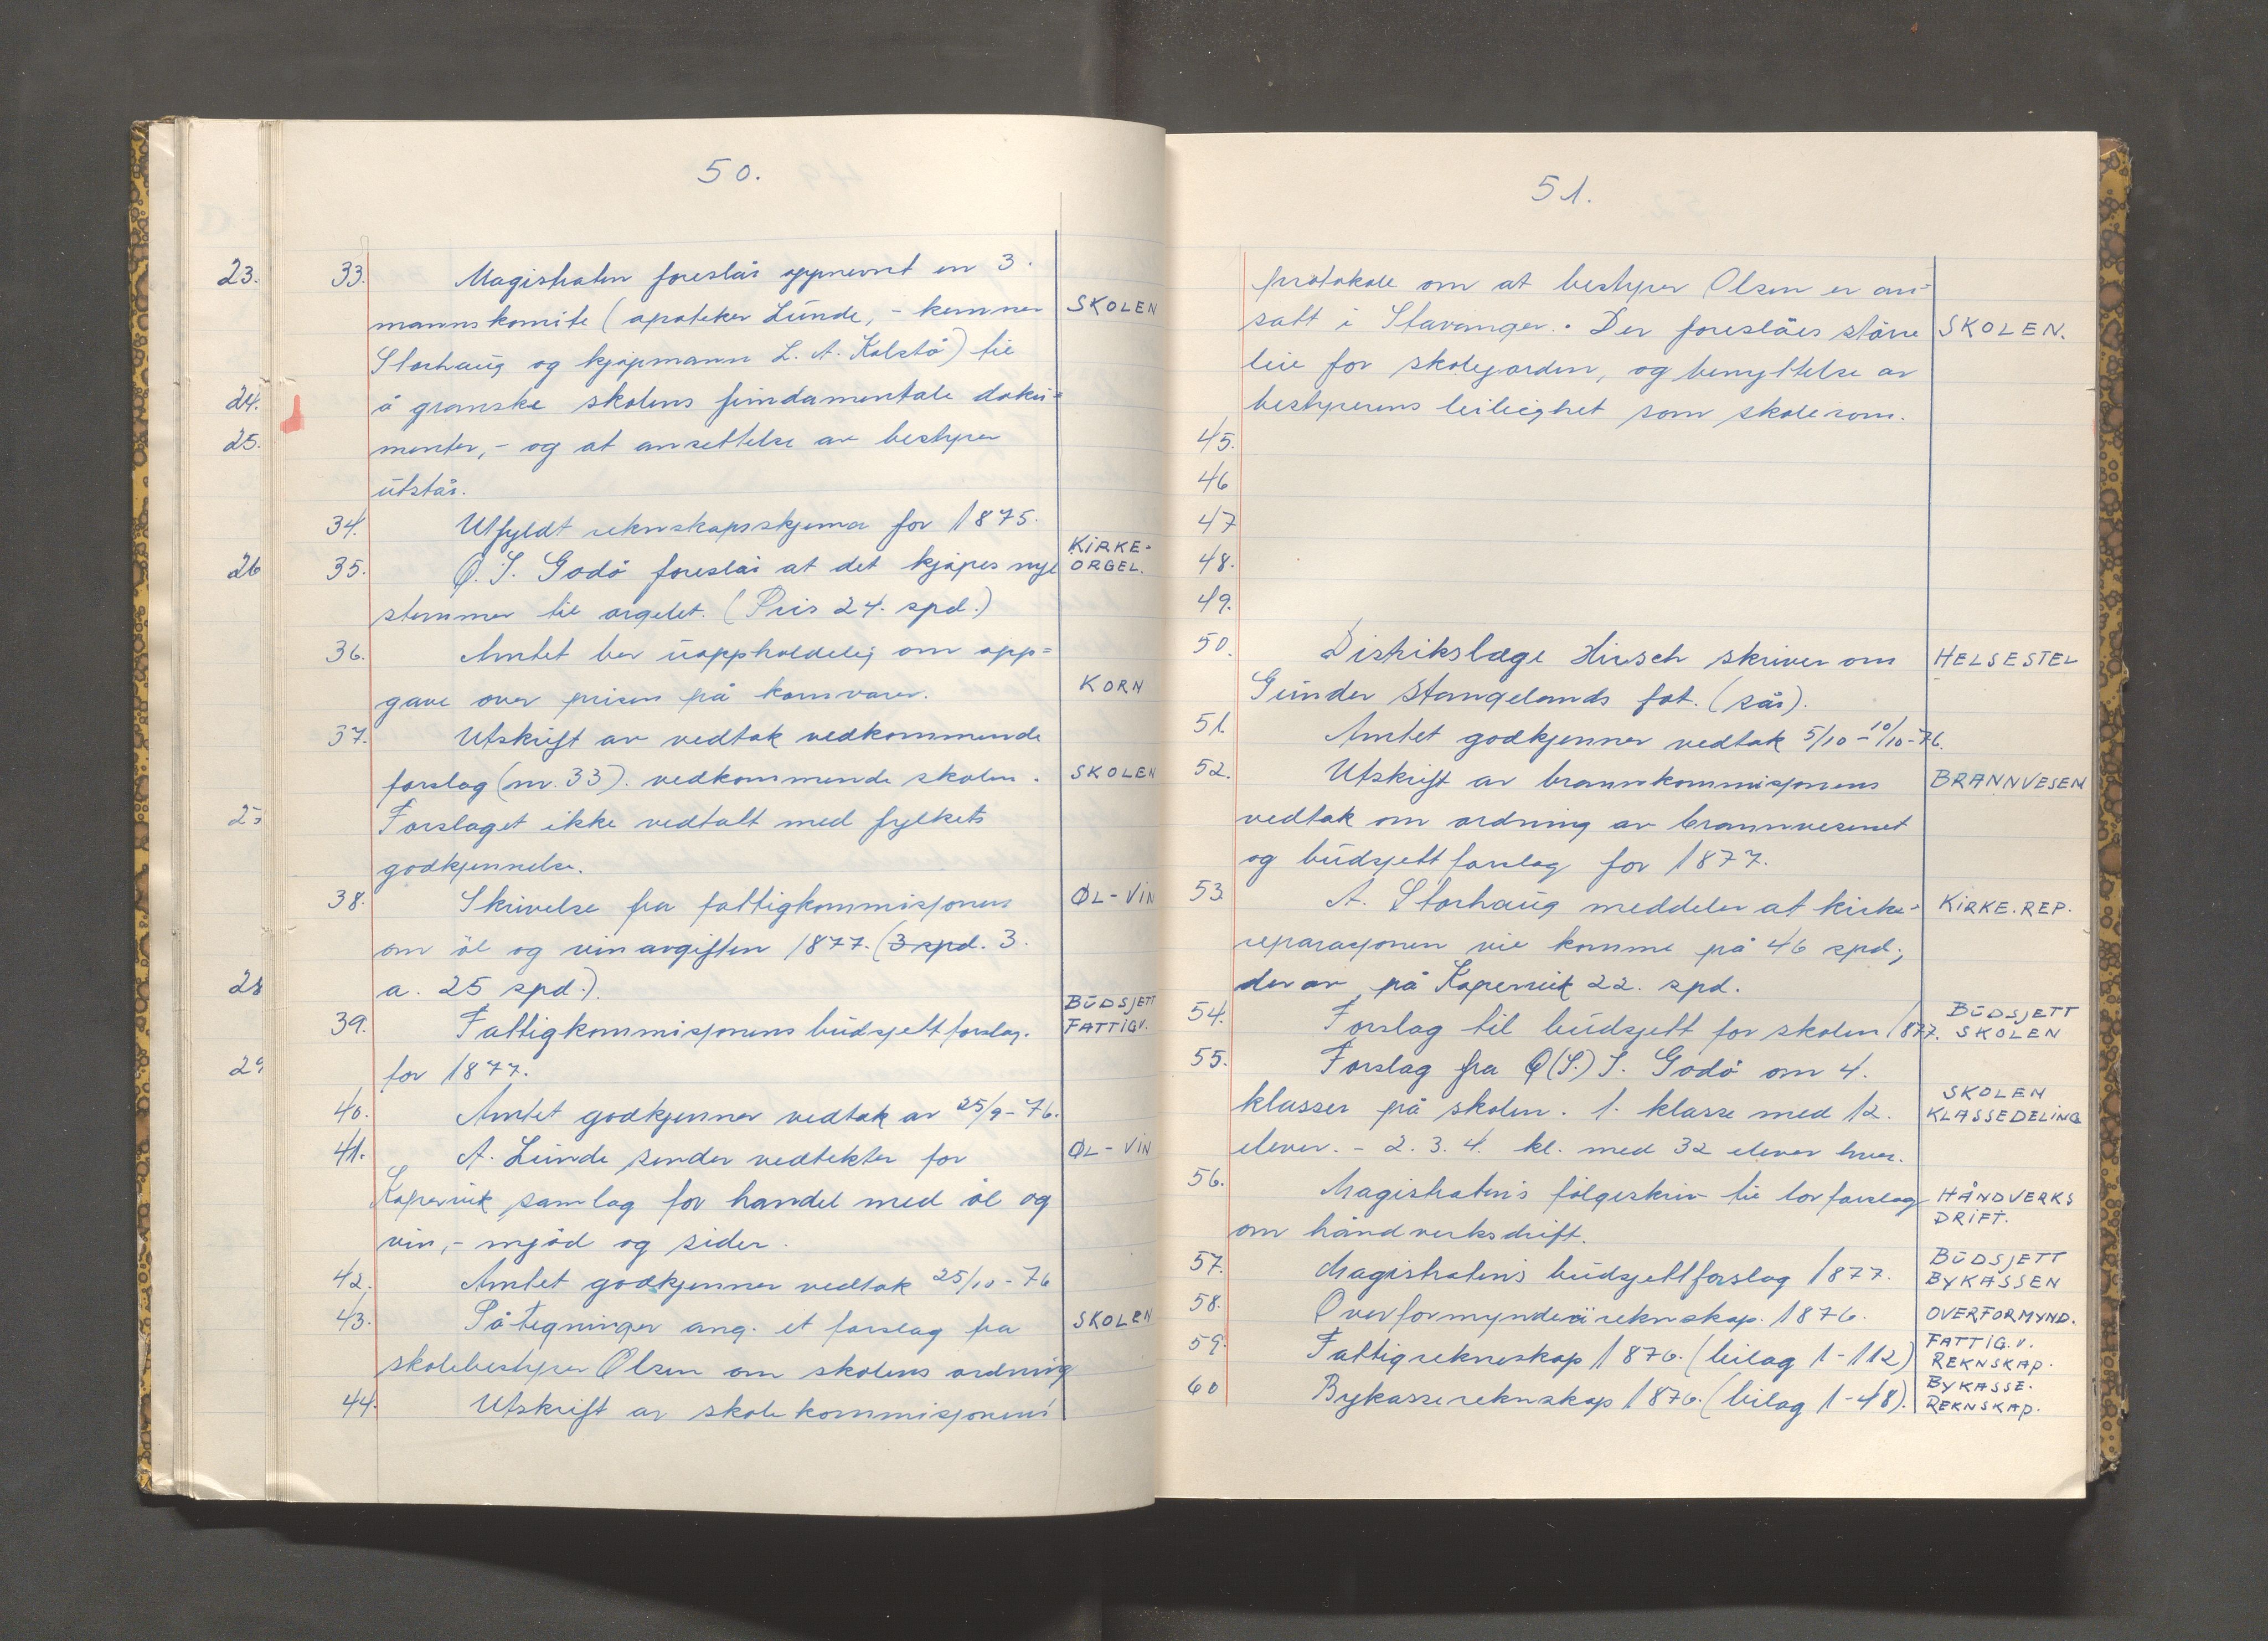 50.
23. 33. Magistraten foreslår oppnevnt en 3.
mannskomite (apoteker Lunde, - kemner SKOLEN
Storhaug og kjøpmann L. A. Kolstø) til
24. å granske skolens fundamentale doku=
25. menter, - og at ansettelse av bestyrer
utstår.
34. Utfyldt reknskapsskjema for 1875.
26 35. O. S. Godø foreslår at det kjøpes nye KIRKE-
ORGEL.
stemmer til orgelet. (Pris 24. spd.)
36. Amtet ber uoppholdelig om opp=
gave over prisen på kornvarer. KORN
37. Utskrift av vedtak vedkommende
forslag (nr. 33). vedkommende skolen. SKOLEN
Forslaget ikke vedtatt med fylkets
godkjennelse.
38. Skrivelse fra fattigkommisjonen ØL-VIN
om øl og vinavgiften 1877. (3 spd. 3.
28 a. 25 spd.).
39. Fattigkommisjonens budsjettforslag. BUDSJETT
FATTIGV.
29 for 1877.
40. Amtet godkjenner vedtak av 25/9-76.
41. A. Lunde sender vedtekter for ØL-VIN
Kopervik samlag for handel med øl og
vin, - mjød og sider.
42. Amtet godkjenner vedtak 25/10-76
43. Påtegninger ang. et forslag fra SKOLEN
skolebestyrer Olsen om skolens ordning
44. Utskrift av skolekommisjonens
51.
protokoll om at bestyrer Olsen er an=
satt i Stavanger. Der foreslåes större SKOLEN.
leie for skolejorden, og benyttelse av
bestyrerens leilighet som skolerom.
45.
46
47
48.
49.
50. Distrikslæge Hirsch skriver om HELSESTEL
Gunder Stangelands fot. (sår).
51. Amtet godkjenner vedtak 5/10-10/10-76.
52. Utskrift av brannkommisjonens BRANNVESEN
vedtak om ordning av brannvesenet
og budsjettforslag for 1877.
53 A. Storhaug meddeler at kirke= KIRKE.REP.
reparasjonen vil komme på 46 spd.;
derav på Kopervik 22. spd.
54. Forslag til budsjett for skolen 1877. BUDSJETT
SKOLEN
55. Forslag fra O(S.) S. Godø om 4.
klasser på skolen. 1. klasse med 12. SKOLEN
KLASSEDELING
elever. - 2. 3. 4. kl. med 32 elever hver.
56. Magistraten's følgeskriv til lovforslag HÅNDVERKS
DRIFT.
om håndverksdrift.
57. Magistraten's budsjettforslag 1877. BUDSJETT
BYKASSEN
58. Overformynderireknskap. 1876. OVERFORMYND.
59. Fattigrekneskap 1876. (bilag 1-112) FATTIG.V.
REKNSKAP.
60 Bykassereknskap 1876. (bilag 1-48). BYKASSE.
REKNSKAP.